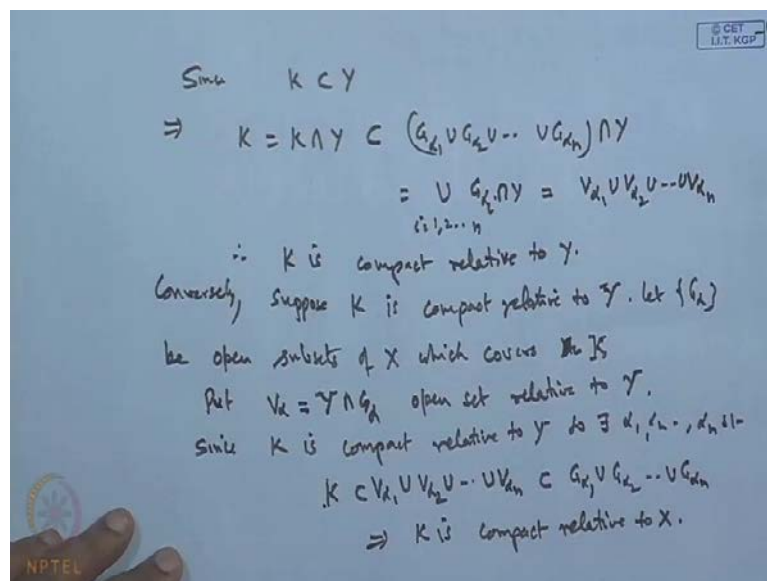 © CET
I.I.T. KGP
Since K ⊂ Y
⇒ K = K ∩ Y ⊂ (G_α₁ ∪ G_α₂ ∪ -- ∪ G_αₙ) ∩ Y
= ∪ G_αᵢ ∩ Y = V_α₁ ∪ V_α₂ ∪ -- ∪ V_αₙ
i=1,2...n
∴ K is compact relative to Y.
Conversely, Suppose K is compact relative to Y. let {G_α}
be open subsets of X which covers K
Put V_α = Y ∩ G_α open set relative to Y.
Since K is compact relative to Y so ∃ α₁, α₂ .., αₙ st
K ⊂ V_α₁ ∪ V_α₂ ∪ -- ∪ V_αₙ ⊂ G_α₁ ∪ G_α₂ -- ∪ G_αₙ
⇒ K is compact relative to X.
NPTEL